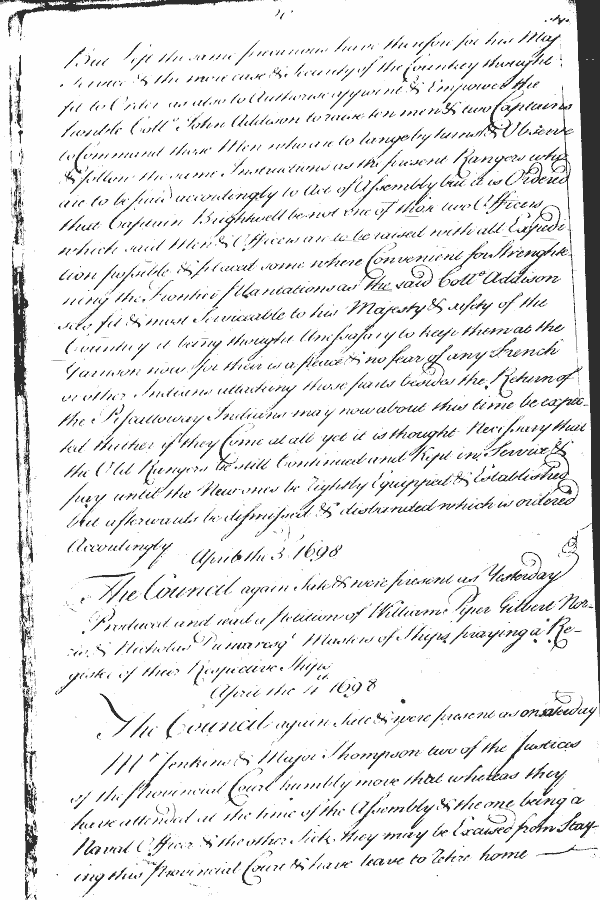 But lest the same have therefore for his Maj
Service & the more ease & Security of the Country thought
fit to Order as also to Authorise appoint & Empower the
honble Coll John Addison to raise ten men & two Captains
to Command those Men who are to range by turns & Observe
& follow the same Instructions as the present Rangers who
are to be paid accordingly to Act of Assembly but it is Ordered
that Captain Brightwell be not one of those two Officers
which said Men & Officers are to be raised with all Expedi
tion possible & placed some where Convenient for Strengthe
ning the Frontier Plantations as the said Coll Addison
sees fit & most Serviceable to his Majesty & safety of the
Country it being thought Unnessary to keep them at the
Garrison now for there is a peace & no fear of any French
or other Indians attacking those parts besides the Return of
the Piscattoway Indians may now about this time be expec
ted neither if they Come at all yet it is thought Necessary that
the Old Rangers be still Continued and Kept in Service &
pay until the New ones be rightly Equipped & Established
but afterwards be dismissed & disbanded which is ordered
Accordingly
April the 3 1698
The Council again Sate & were present as Yesterday
Produced and read a petition of William Piper Gilbert Nor
ris & Nicholas Dumaresq Masters of Ships praying a Re-
gister of their Respective Ships
April the 4th 1698
The Council again Sate & were present as on
Mr Jenkins & Major Thompson two of the Justices
of the Provincial Court humbly move that whereas they
have attended at the time of the Assembly & the one being a
Naval Officer & the other Sick they may be Excused from Stay
ing this Provincial Court & have leave to retire home